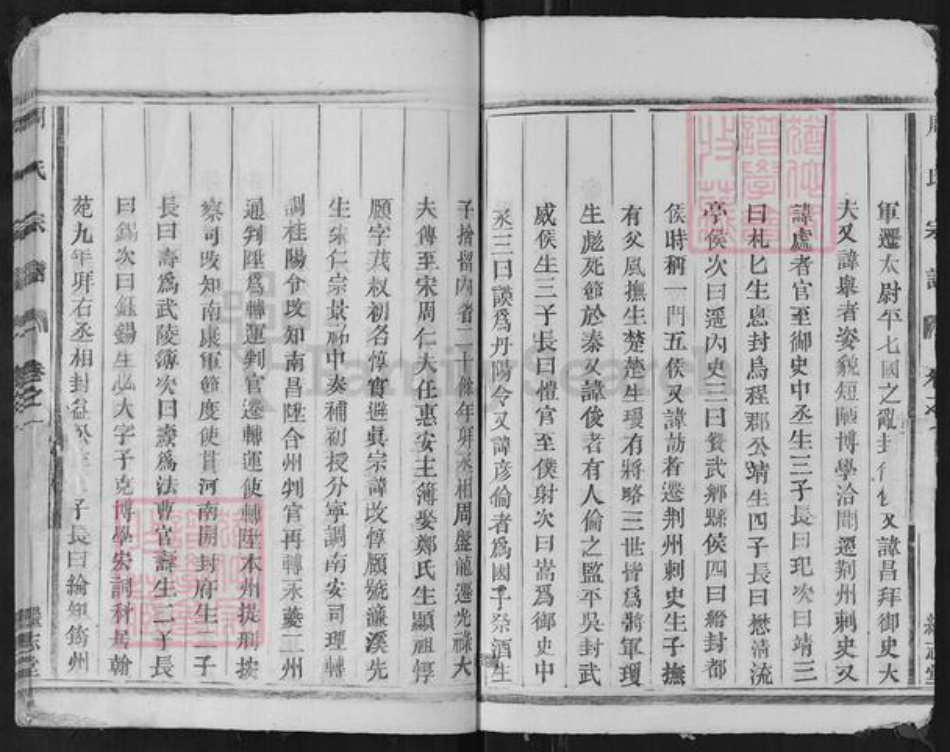 周氏宗譜 卷之一
軍遷太尉平七國之亂封 侯又諱昌拜御史大
夫又諱輿者姿貌短陋博學洽聞遷荆州刺史又
諱處者官至御史中丞生三子長曰玘次曰靖三
曰札玘生恖封烏程郡公靖生四子長曰懋清流
亭侯次曰遥內史三曰贊武鄉縣侯四曰縉封都
侯時稱一門五侯又諱訪者遷荆州刺史生子撫
有父風撫生楚楚生瓊有將略三世皆爲將軍瓊
生虓死節於秦又諱俊者有人倫之監平吳封武
威侯生三子長曰愷官至僕射次曰嵩爲御史中
丞三曰謨爲丹陽令又諱彥倫者爲國子祭酒生
子捨留內省二十餘年拜丞相周盤龍遷光祿大
夫傳至宋周仁夫任惠安主簿娶鄭氏生顯祖惇
願字茂叔初名惇實避眞宗諱改惇願號濂溪先
生宋仁宗景祐中奏補初授分寧調南安司理轉
調桂陽令改知南昌陞合州判官再轉永 二州
通判陞爲轉運判官遷轉運使轉陞本州提刑按
察司改知南康軍節度使 河南開封府生二子
長曰壽爲武陵簿次曰燾爲法曹官壽生二子長
曰錫次曰鈺錫生必大字子充博學宏詞科居翰
苑九年拜右丞相封益 子長曰綸知筠州
周氏宗譜 卷之一
繼志堂
Family Search